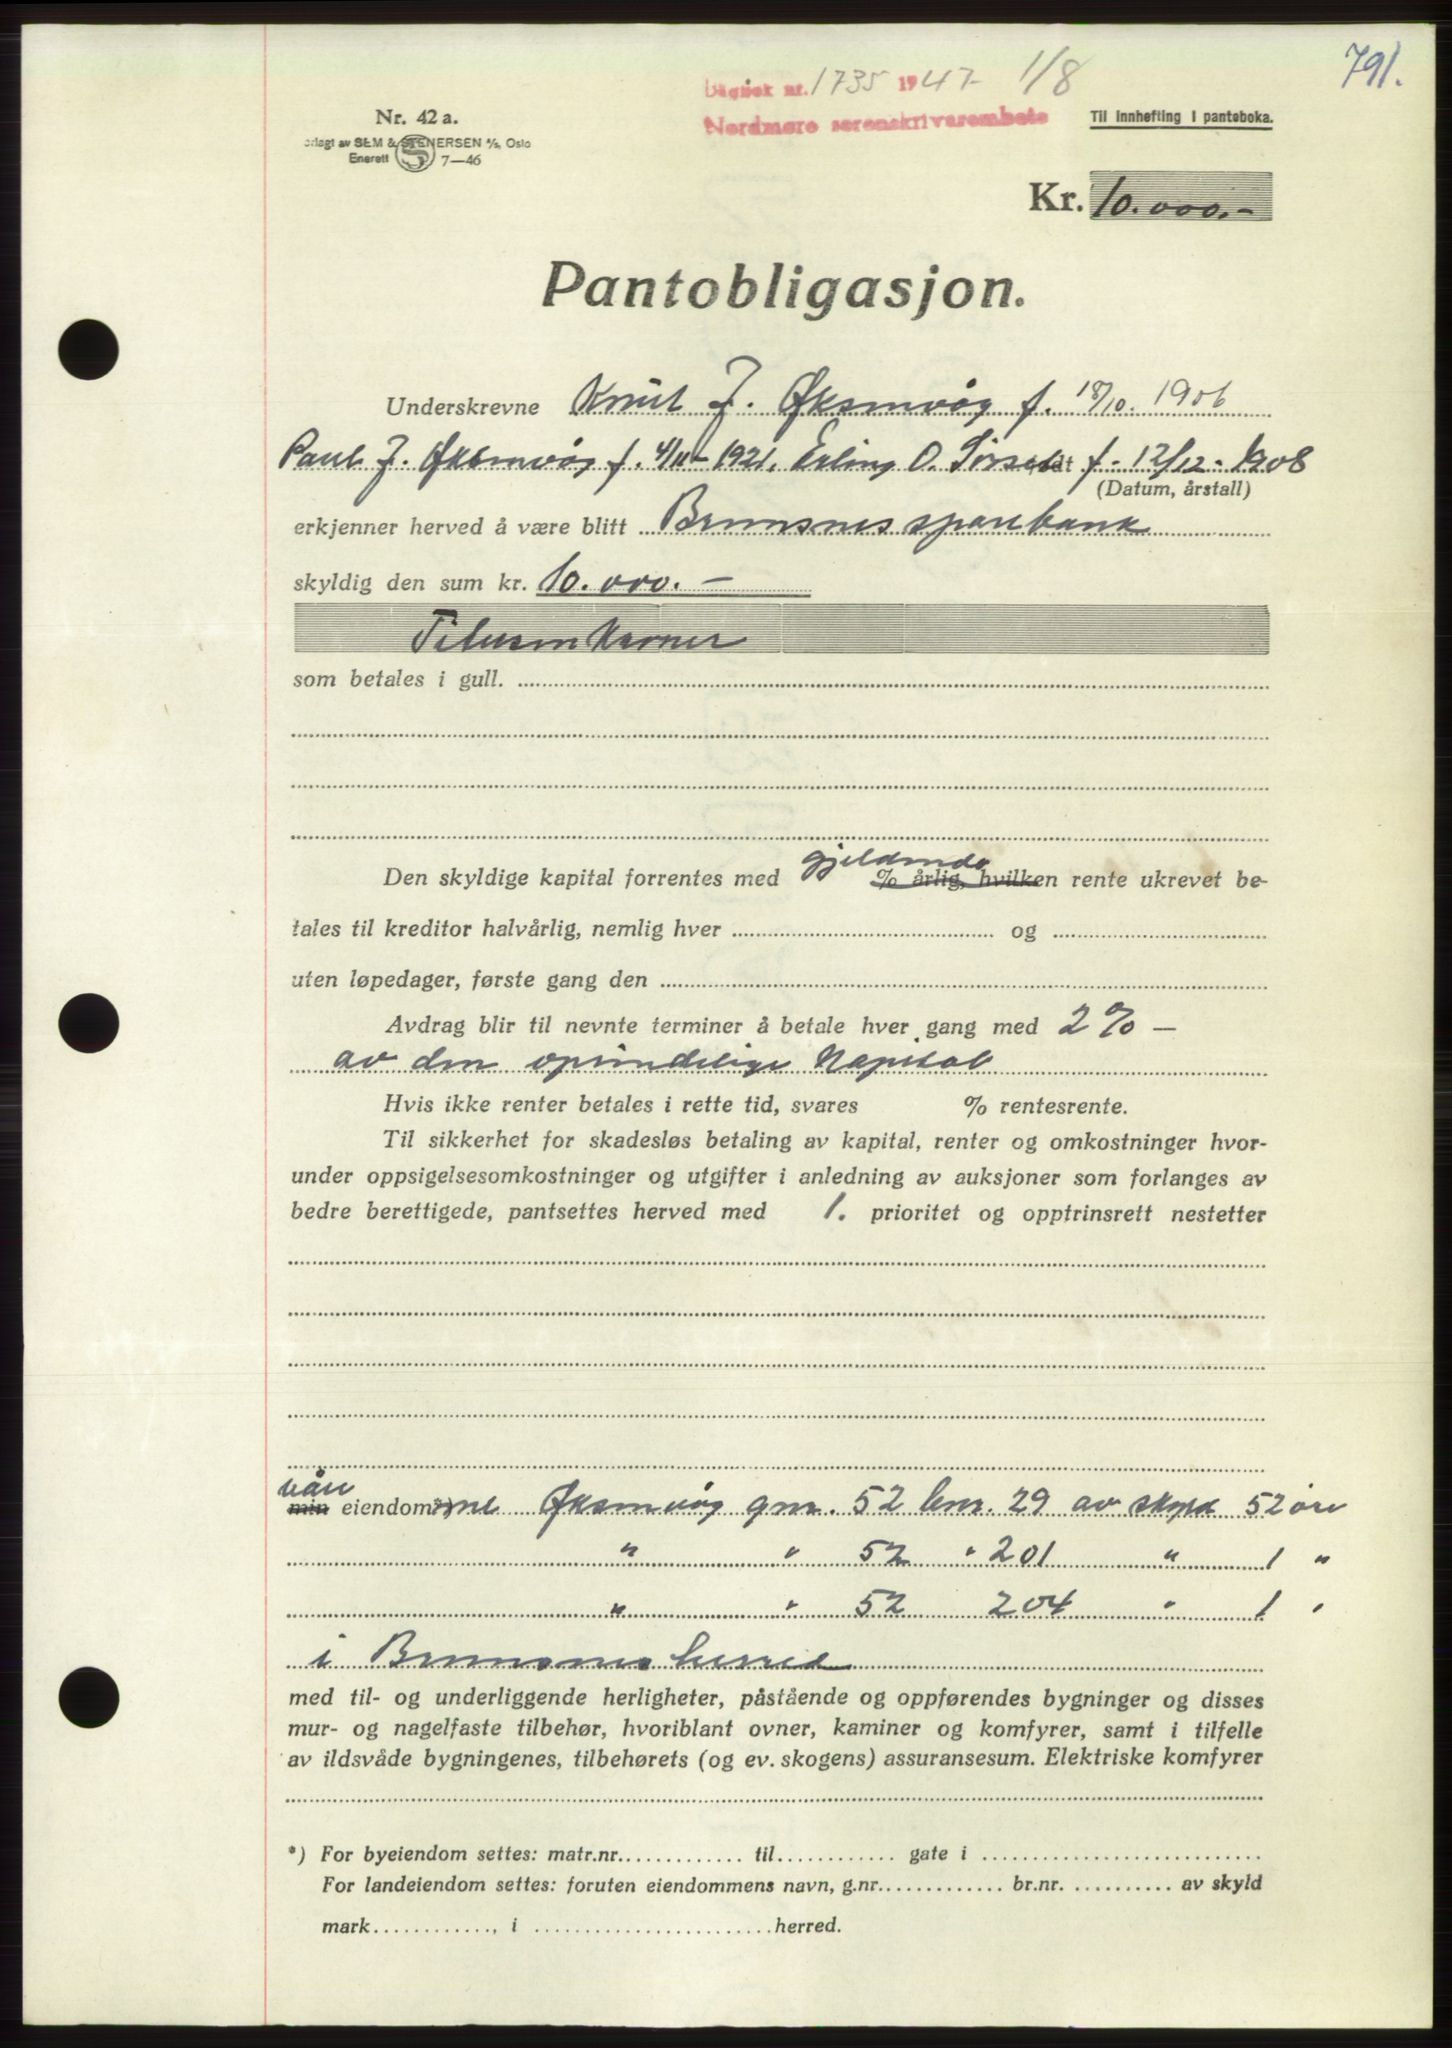 791.
Dagbok nr. 1735 1947 1/8
Nordmøre sorenskrivarembete
Til innhefting i panteboka.
Nr. 42 a.
orlagt av SEM & STENERSEN A/S, Oslo
Enerett S 7—46
Kr. 10.000.-
Pantobligasjon.
Underskrevne Knut J. Øksenvåg f. 18/10. 1906
Paul J. Øksenvåg f. 4/11-1921. Erling O. født f. 12/12-1908
(Datum, årstall)
erkjenner herved å være blitt Bremsnes sparebank
skyldig den sum kr. 10.000.-
Titusen kroner
som betales i gull.
Den skyldige kapital forrentes med gjeldende % årlig, hvilken rente ukrevet be-
tales til kreditor halvårlig, nemlig hver og
uten løpedager, første gang den
Avdrag blir til nevnte terminer å betale hver gang med 2% —
av den oprindelige kapital
Hvis ikke renter betales i rette tid, svares % rentesrente.
Til sikkerhet for skadesløs betaling av kapital, renter og omkostninger hvor-
under oppsigelsesomkostninger og utgifter i anledning av auksjoner som forlanges av
bedre berettigede, pantsettes herved med 1. prioritet og opptrinsrett nestetter
våre
min eiendom*) ene Øksenvåg gnr. 52 bnr. 29 av skyld 52 øre
" " 52 " 201 " 1 "
" " 52 204 " 1 "
i Bremsnes herred
med til- og underliggende herligheter, påstående og oppførendes bygninger og disses
mur- og nagelfaste tilbehør, hvoriblant ovner, kaminer og komfyrer, samt i tilfelle
av ildsvåde bygningenes, tilbehørets (og ev. skogens) assuransesum. Elektriske komfyrer
*) For byeiendom settes: matr.nr. til gate i
For landeiendom settes: foruten eiendommens navn, g.nr. br.nr. av skyld
mark , i herred.